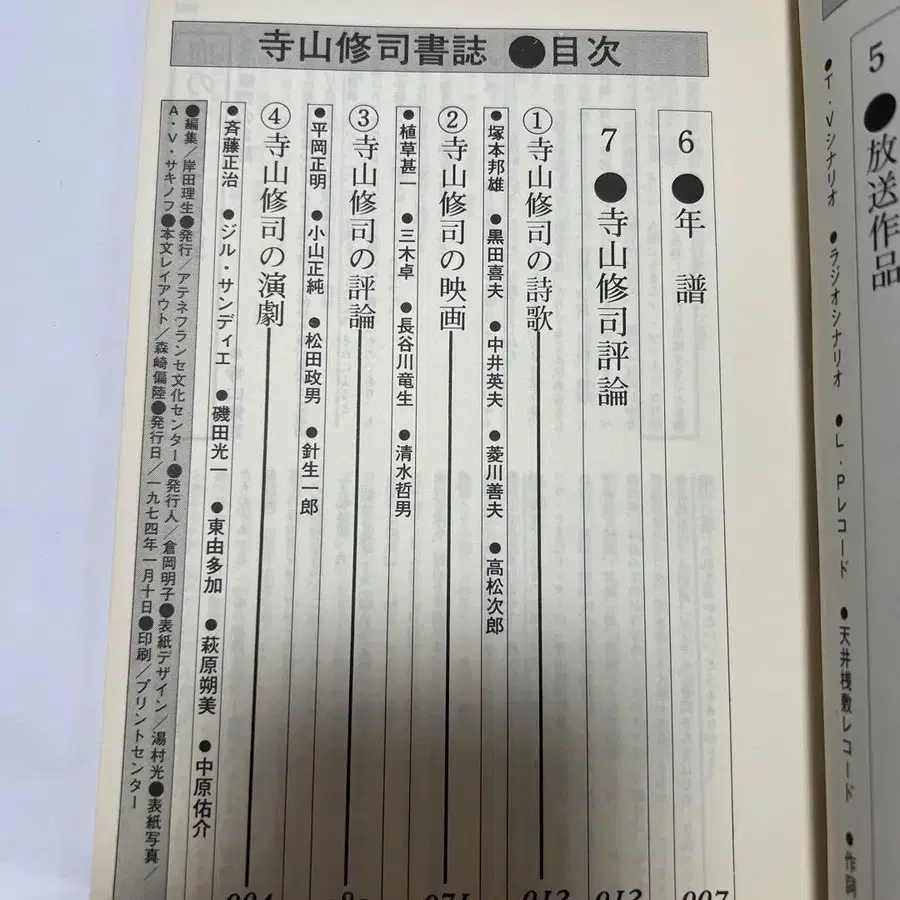 5●放送作品
●T・Vシナリオ ●ラジオシナリオ ●L・Pレコード ●天井桟敷レコード ●作詞
寺山修司書誌 ●目次
6●年 譜
7●寺山修司評論
①寺山修司の詩歌
●塚本邦雄 ●黒田喜夫 ●中井英夫 ●菱川善夫 ●高松次郎
②寺山修司の映画
●植草甚一 ●三木卓 ●長谷川竜生 ●清水哲男
③寺山修司の評論
●平岡正明 ●小山正純 ●松田政男 ●針生一郎
④寺山修司の演劇
●斉藤正治 ●ジル・サンディエ ●磯田光一 ●東由多加 ●萩原朔美 ●中原佑介
●編集／岸田理生●発行／アテネフランセ文化センター●発行人／倉岡明子●表紙デザイン／湯村光●表紙写真／
A・V・サキノフ●本文レイアウト／森崎偏陸●発行日／一九七四年一月十日●印刷／プリントセンター